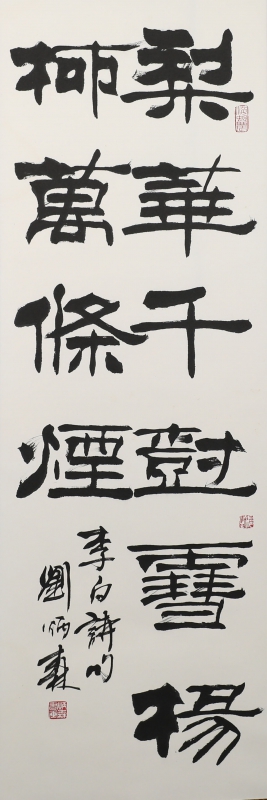 梨華千樹雪楊
柳萬條煙
李白詩句
劉炳森